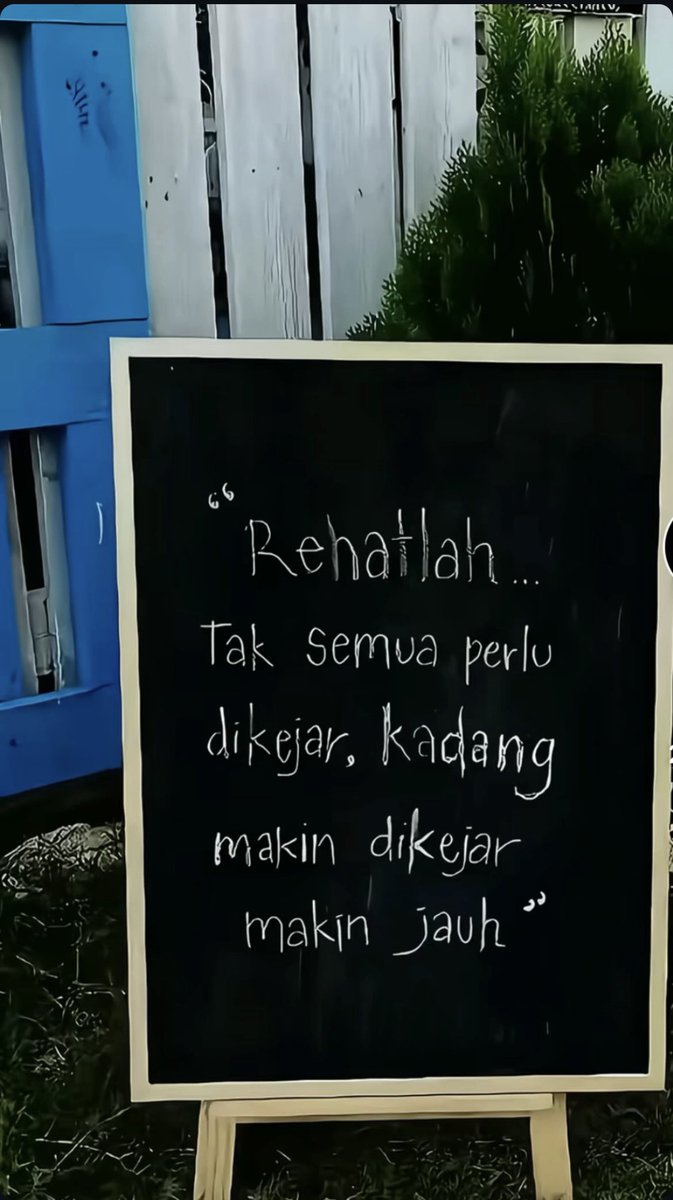 “Rehatlah...
Tak semua perlu
dikejar, kadang
makin dikejar
makin jauh”